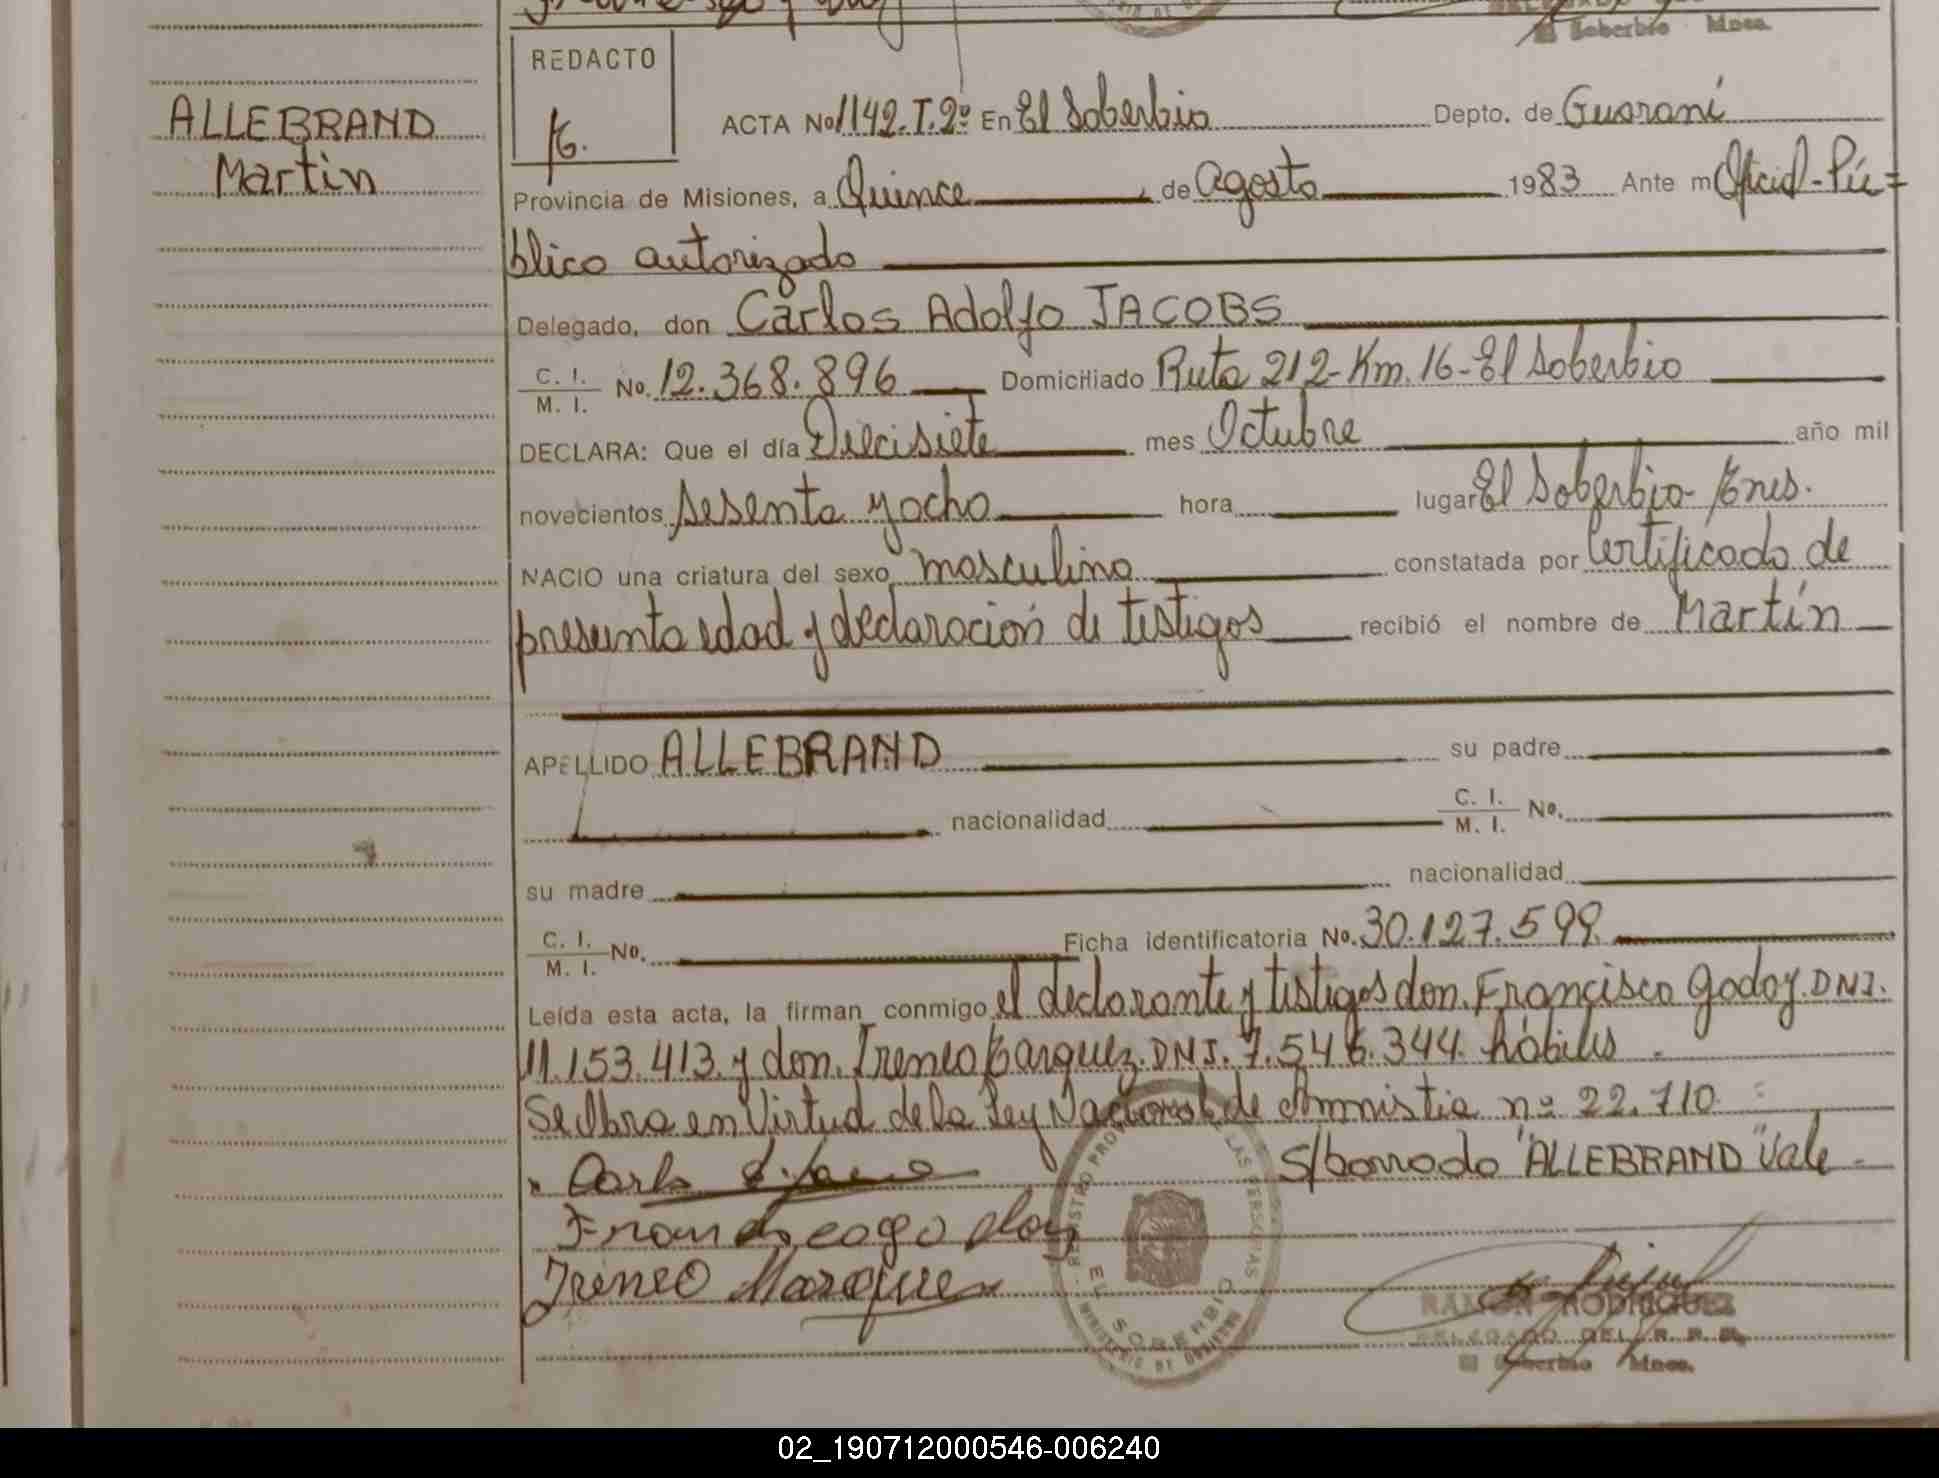 Soberbio Mnes.
REDACTO
ALLEBRAND
Martin
ACTA No 1142.T.2º En El Soberbio Depto. de Guaraní
Provincia de Misiones, a Quince de Agosto 1983 Ante m Oficial Pú=
blico autorizado
Delegado, don Carlos Adolfo JACOBS
C. I.
M. I. No. 12.368.896 Domiciliado Ruta 212-Km.16-El Soberbio
DECLARA: Que el día Diecisiete mes Octubre año mil
novecientos sesenta y ocho hora lugar El Soberbio-Mnes.
NACIO una criatura del sexo masculino constatada por Certificado de
presunta edad y declaración de testigos recibió el nombre de Martín
APELLIDO ALLEBRAND su padre
nacionalidad C. I.
M. I. No.
su madre nacionalidad
C. I.
M. I. No. Ficha identificatoria No. 30.127.599
Leída esta acta, la firman conmigo el declarante y testigos don. Francisco Godoy. DNI.
11.153.413. y don. Ireneo Marquez. DNI. 7.546.344. hábiles
Se labra en Virtud de la Ley Nacional de Amnistia nº 22.710
S/borrado "ALLEBRAND" Vale
Ireneo Marquez
REGISTRO PROV. DE LAS PERSONAS
EL SOBERBIO
MINISTERIO DE GOBIERNO
RAMON RODRIGUEZ
DELEGADO DEL R. P. P.
El Soberbio Mnes.
02_190712000546-006240